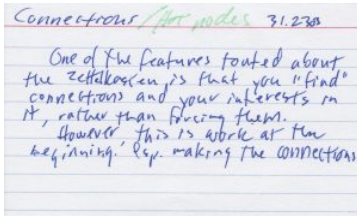 Connections / Hot nodes 31.23a3
One of the features touted about
the zettelkasten, is that you "find"
connections and your interests in
it, rather than forcing them.
However this is work at the
beginning. Esp. making the connections